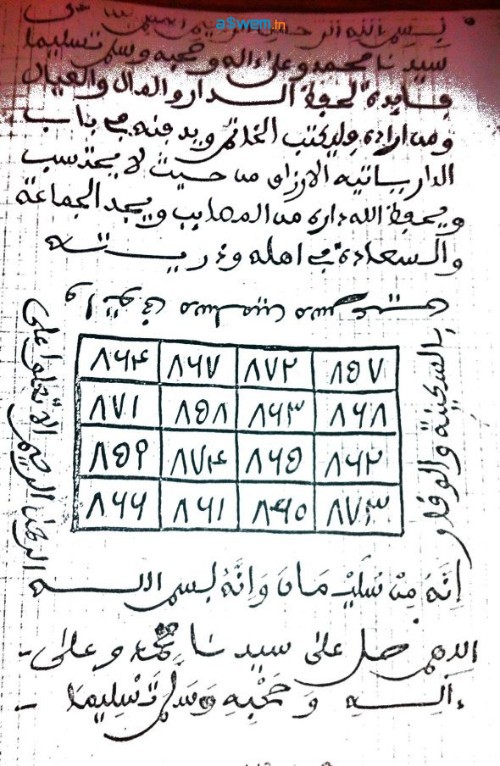 aSwem.tn
بسم الله الرحمن الرحيم اللهم صل على
سيدنا محمد وعلى ءاله وصحبه وسلم تسليما
فايدة لحفظ الدار والمال والعيال
ومن اراده فليكتب الخاتم ويدفنه في باب
الدار ياتيه الارزاق من حيث لا يحتسب
ويحفظ الله داره من المصايب ويجد الجماعة
والسعادة في اهله وذريته
إنه من سليمان وانه بسم الله
الرحمن الرحيم الا تعلوا على
واتوني مسلمين
بالسكينة والوقار
٨٥٧ ٨٧٢ ٨٦٧ ٨٦٤
٨٦٨ ٨٦٣ ٨٥٨ ٨٧١
٨٦٢ ٨٦٥ ٨٧٤ ٨٥٩
٨٧٣ ٨٦٠ ٨٦١ ٨٦٦
اللهم صل على سيدنا محمد وعلى
ءاله وصحبه وسلم تسليما